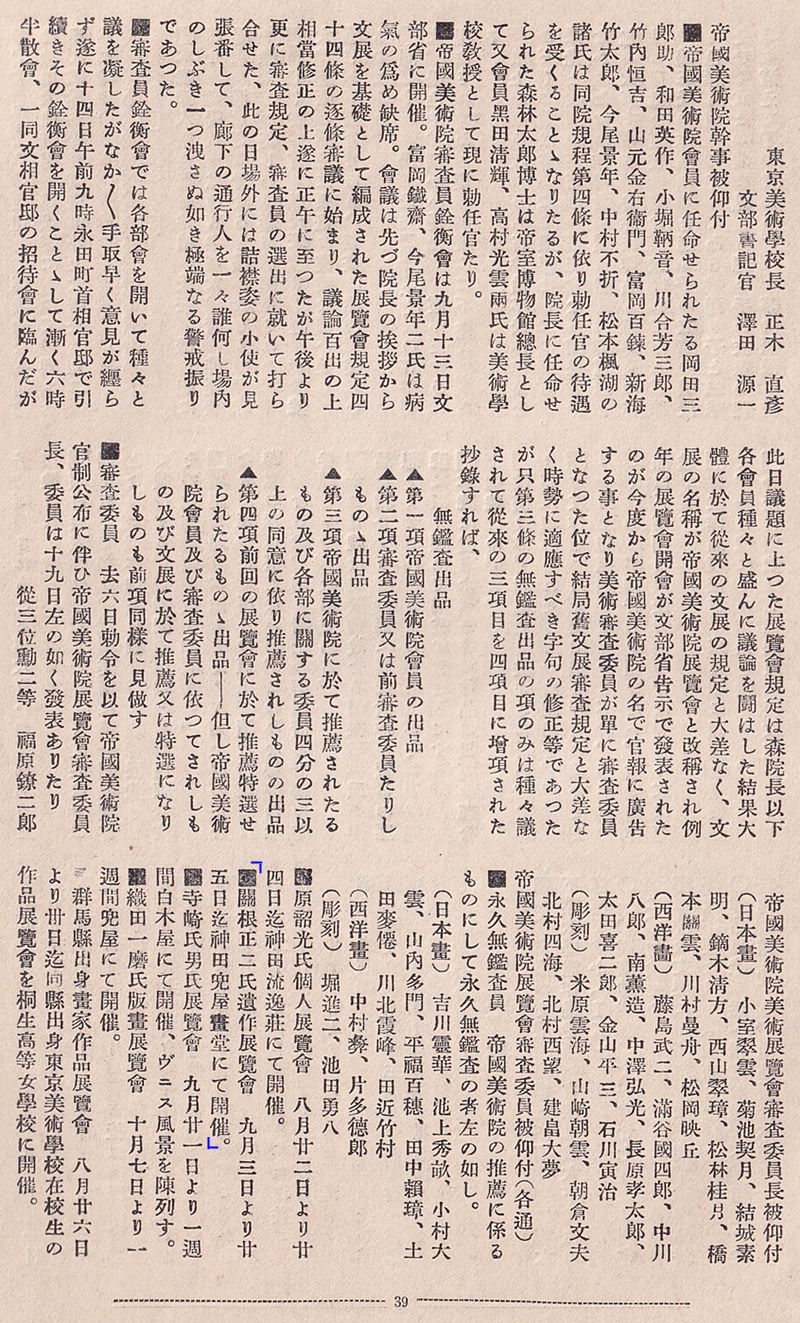 東京美術學校長　正木　直彥
文部書記官　澤田　源一
帝國美術院幹事被仰付
■帝國美術院會員に任命せられたる岡田三
郎助、和田英作、小堀鞆音、川合芳三郎、
竹內恒吉、山元金右衞門、富岡百鍊、新海
竹太郎、今尾景年、中村不折、松本楓湖の
諸氏は同院規程第四條に依り勅任官の待遇
を受くることゝなりたるが、院長に任命せ
られた森林太郎博士は帝室博物館總長とし
て又會員黑田淸輝、高村光雲兩氏は美術學
校敎授として現に勅任官たり。
■帝國美術院審査員銓衡會は九月十三日文
部省に開催。富岡鐵齋、今尾景年二氏は病
氣の爲め缺席。會議は先づ院長の挨拶から
文展を基礎として編成された展覽會規定四
十四條の逐條審議に始まり、議論百出の上
相當修正の上遂に正午に至つたが午後より
更に審査規定、審査員の選出に就いて打ら
合せた、此の日場外には詰襟姿の小使が見
張番して、廊下の通行人を一々誰何し場內
のしぶき一つ洩さぬ如き極端なる警戒振り
であつた。
■審査員銓衡會では各部會を開いて種々と
議を凝したがなか〱手取早く意見が纒ら
ず遂に十四日午前九時永田町首相官邸で引
續きその銓衡會を開くことゝして漸く六時
半散會、一同文相官邸の招待會に臨んだが
此日議題に上つた展覽會規定は森院長以下
各會員種々と盛んに議論を鬪はした結果大
體に於て從來の文展の規定と大差なく、文
展の名稱が帝國美術院展覽會と改稱され例
年の展覽會開會が文部省告示で發表された
のが今度から帝國美術院の名で官報に廣告
する事となり美術審査委員が單に審査委員
となつた位で結局舊文展審査規定と大差な
く時勢に適應すべき字句の修正等であつた
が只第三條の無鑑査出品の項のみは種々議
されて從來の三項目を四項目に增項された
抄錄すれば、
無鑑査出品
▲第一項帝國美術院會員の出品
▲第二項審査委員又は前審査委員たりし
ものゝ出品
▲第三項帝國美術院に於て推薦されたる
もの及び各部に關する委員四分の三以
上の同意に依り推薦されしものの出品
▲第四項前回の展覽會に於て推薦特選せ
られたるものゝ出品――但し帝國美術
院會員及び審査委員に依つてされしも
の及び文展に於て推薦又は特選になり
しものも前項同樣に見做す
■審査委員　去六日勅令を以て帝國美術院
官制公布に伴ひ帝國美術院展覽會審査委員
長、委員は十九日左の如く發表ありたり
從三位勳二等　福原鐐二郎
帝國美術院美術展覽會審査委員長被仰付
（日本畫）　小室翠雲、菊池契月、結城素
明、鏑木淸方、西山翠璋、松林桂月、橋
本關雲、川村曼舟、松岡映丘
（西洋畵）　藤島武二、滿谷國四郎、中川
八郎、南薰造、中澤弘光、長原孝太郎、
太田喜二郎、金山平三、石川寅治
（彫刻）　米原雲海、山崎朝雲、朝倉文夫
北村四海、北村西望、建畠大夢
帝國美術院展覽會審査委員被仰付（各通）
■永久無鑑査員　帝國美術院の推薦に係る
ものにして永久無鑑査の者左の如し。
（日本畫）　吉川靈華、池上秀畝、小村大
雲、山內多門、平福百穗、田中賴璋、土
田麥僊、川北霞峰、田近竹村
（西洋畫）　中村彝、片多德郎
（彫刻）　堀進二、池田勇八
■原詔光氏個人展覽會　八月廿二日より廿
四日迄神田流逸莊にて開催。
■關根正二氏遺作展覽會　九月三日より廿
五日迄神田兜屋畫堂にて開催。
■寺崎氏男氏展覽會　九月廿一日より一週
間白木屋にて開催、ヴニス風景を陳列す。
■織田一磨氏版畫展覽會　十月七日より一
週間兜屋にて開催。
群馬縣出身畫家作品展覽會　八月廿六日
より卅日迄同縣出身東京美術學校在校生の
作品展覽會を桐生高等女學校に開催。
39